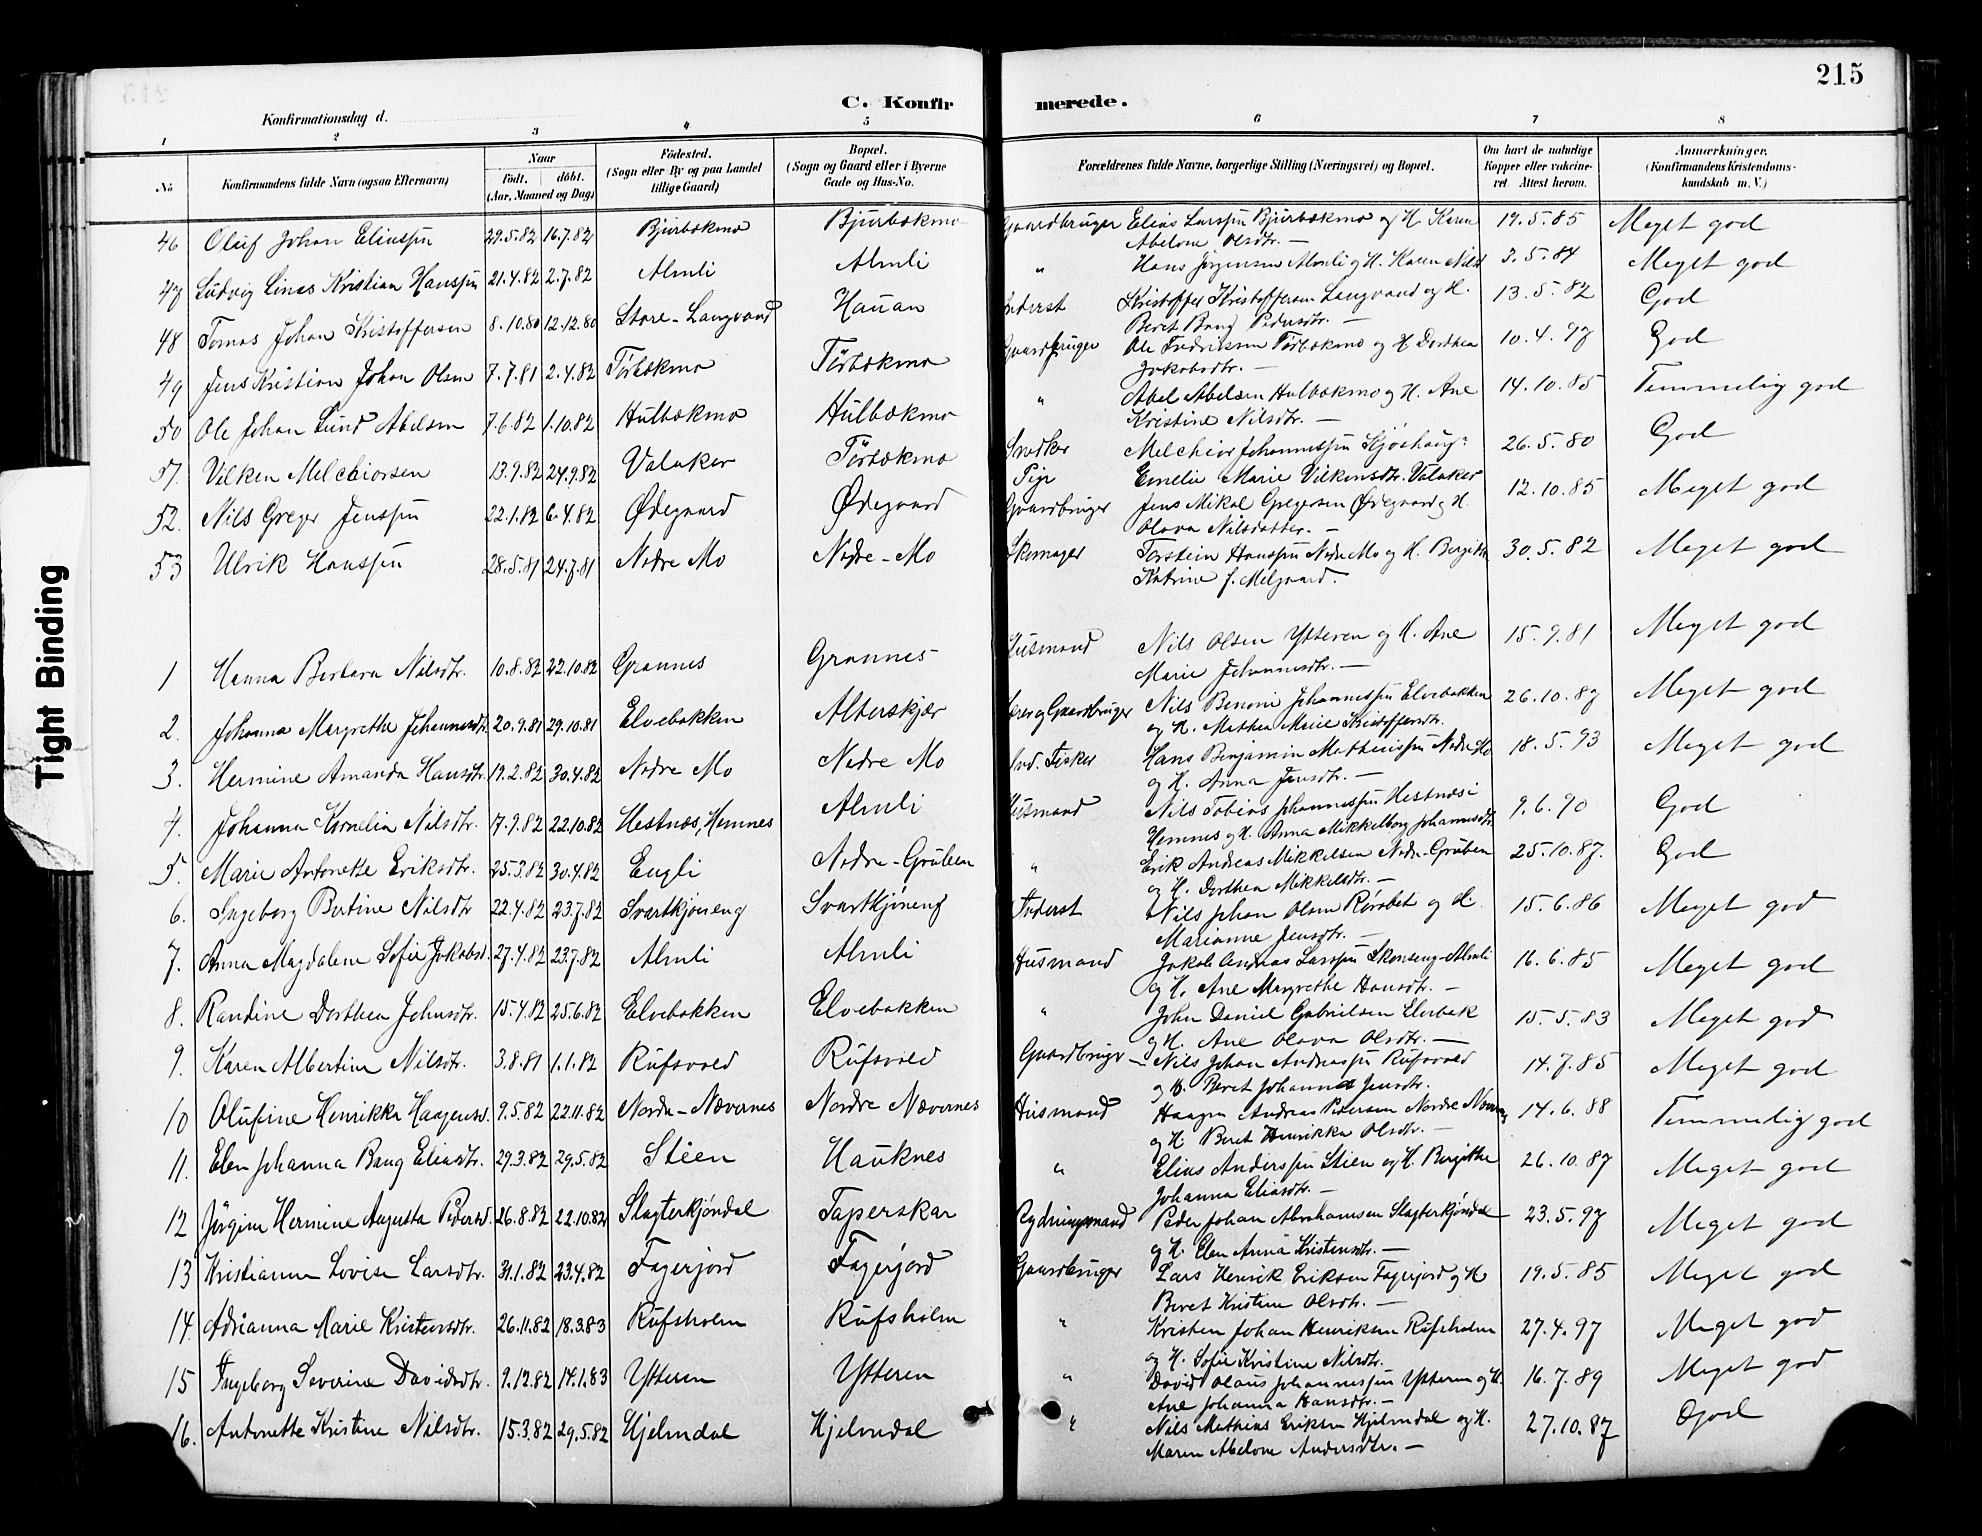 215
C. Konfirmerede.
Konfirmationsdag d.
1 2 3 4 5 6 7 8
No
Konfirmandens fulde Navn (ogsaa Efternavn)
Naar
født. døbt.
(Aar, Maaned og Dag)
Fødested.
(Sogn eller By og paa Landet
tillige Gaard)
Bopæl.
(Sogn og Gaard eller i Byerne
Gade og Hus-No.
Forældrenes fulde Navne, borgerlige Stilling (Næringsvei) og Bopæl.
Om havt de naturlige
Kopper eller vakcine-
ret. Attest herom.
Anmærkninger.
(Konfirmandens Kristendoms-
kundskab m. V.)
46 Oluf Johan Eliassen 29.5.82 16.7.82 Bjurbækmo Bjurbækmo Gaardbruger Elias Larssen Bjurbækmo og H. Karen 19.5.85 Meget god
Abelone Olsdtr. —
47 Ludvig Linas Kristian Hanssen 21.4.82 2.7.82 Almli Almli " Hans Jørgensen Almli og H. Karen Nilsd 3.5.84 Meget god
48 Tomas Johan Kristoffersen 8.10.80 12.12.80 Store-Langvand Hauan Inderst Kristoffer Kristoffersen Langvand og H. 13.5.82 God
Beret Bang Pedersdtr. —
49 Jens Kristian Johan Olsen 7.7.81 2.4.82 Törbækmo Törbækmo Gaardbruger Ole Fredriksen Törbækmo og H Dorthea 10.4.97 God
Jakobsdtr. —
50 Ole Johan Lund Abelsen 7.6.82 1.10.82 Hulbækmo Hulbækmo " Abel Abelsen Hulbækmo og H. Ane 14.10.85 Temmelig god
Kristine Nilsdtr. —
51. Vilken Melchiorsen 13.9.82 24.9.82 Valaker Törbækmo Snedker Melchior Johannessen Kjøshaug 26.5.80 God
Pige Emelie Marie Vilkensdtr. Valaker
52. Nils Greger Jenssen 22.1.82 6.4.82 Ødegaard Ødegaard Gaardbruger Jens Mikal Gregersen Ødegaard og H. 12.10.85 Meget god
Olava Nilsdatter. —
53 Ulrik Hanssen 28.5.81 24.7.81 Nedre Mo Nedre-Mo Skomager Torstein Hanssen Nedre Mo og H. Bergithe 30.5.82 Meget god
Katrine f. Melgaard.
1 Hanna Barbara Nilsdtr. 10.8.82 22.10.82 Grannes Grannes Husmand Nils Olsen Ytteren og H. Ane 15.9.81 Meget god
Marie Johannesdtr. —
2. Johanna Margrethe Johannesdtr 20.9.81 29.10.81 Elvebakken Alterskjær Lærer og Gaardbruger Nils Benoni Johannessen Elvebakken 26.10.87 Meget god
og H. Mathea Marie Kristoffersdtr.
3. Hermine Amanda Hansdtr. 19.2.82 30.4.82 Nedre Mo Nedre Mo Ind. Fisker Hans Benjamin Mathiassen Nedre Mo 18.5.93 Meget god
og H. Anna Jensdtr. —
4. Johanna Kornelia Nilsdtr. 17.9.82 22.10.82 Hestnæs, Hemnes Almli Husmand Nils Tobias Johannessen Hestnæs i 9.6.90 God
Hemnes og H. Anna Mikkelborg Johannesdtr.
5. Marie Antonette Eriksdtr. 25.3.82 30.4.82 Engli Nedre-Gruben " Erik Andreas Mikkelsen Nedre-Gruben 25.10.87. God
og H. Dorthea Mikkelsdtr. —
6. Ingeborg Bertine Nilsdtr 22.4.82 23.7.82 Svartkjöneng Svartkjöneng Inderst Nils Johan Olsen Rørobet og H. 15.6.86 Meget god
Marianne Jensdtr. —
7. Anna Magdalene Sofie Jakobsd. 27.4.82 23.7.82 Almli Almli Husmand Jakob Andreas Larssen Skonseng-Almli 16.6.85 Meget god
og H. Ane Margrethe Hansdtr. —
8. Randine Dorthea Johnsdtr. 15.4.82 25.6.82 Elvebakken Elvebakken " John Daniel Gabrielsen Elvebak 15.5.83 Meget god
og H. Ane Olava Olsdtr. —
9. Karen Albertine Nilsdtr. 3.8.81 1.1.82 Rufsvold Rufsvold Gaardbruger — Nils Johan Andreassen Rufsvold 14.7.85 Meget god
og H. Beret Johanna Jensdtr.
10 Olufine Henrikka Haagensd. 9.5.82 22.11.82 Nordre-Nævernes Nordre Nævernes Husmand Haagen Andreas Pedersen Nordre Nævernes 14.6.88 Temmelig god
og H. Beret Henrikka Olsdtr. —
11. Elen Johanna Bang Eliasdtr. 29.3.82 29.5.82 Stien Hauknes " Elias Anderssen Stien og H. Bergitha 26.10.87 Meget god
Johanna Eliasdtr. —
12 Jörgine Hermine Augusta Pedersd. 26.8.82 22.10.82 Slagterkjøndal Taperskar Rydningsmand Peder Johan Abrahamsen Slagterkjøndal 23.5.97 Meget god
og H. Elen Anna Kristensdtr. —
13 Kristianna Lovise Larsdtr. 31.1.82 23.4.82 Fagerjord Fagerjord Gaardbruger Lars Henrik Eriksen Fagerjord og H 19.5.85 Meget god
Beret Kristine Olsdtr. —
14. Adrianna Marie Kristensdtr. 26.11.82 18.3.83 Rufsholm Rufsholm " Kristen Johan Henriksen Rufsholm 27.4.97 Meget god
og H. Sofie Kristine Nilsdtr.
15 Ingeborg Severine Davidsdtr. 9.12.82 14.1.83 Ytteren Ytteren " David Olaus Johannessen Ytteren og H. 16.7.89 Meget god
Ane Johanna Hansdtr. —
16. Antonette Kristine Nilsdtr. 15.3.82 29.5.82 Hjelmdal Hjelmdal " Nils Mathias Eriksen Hjelmdal og H. 27.10.87 God
Maren Abelone Andersdtr. —
Tight Binding